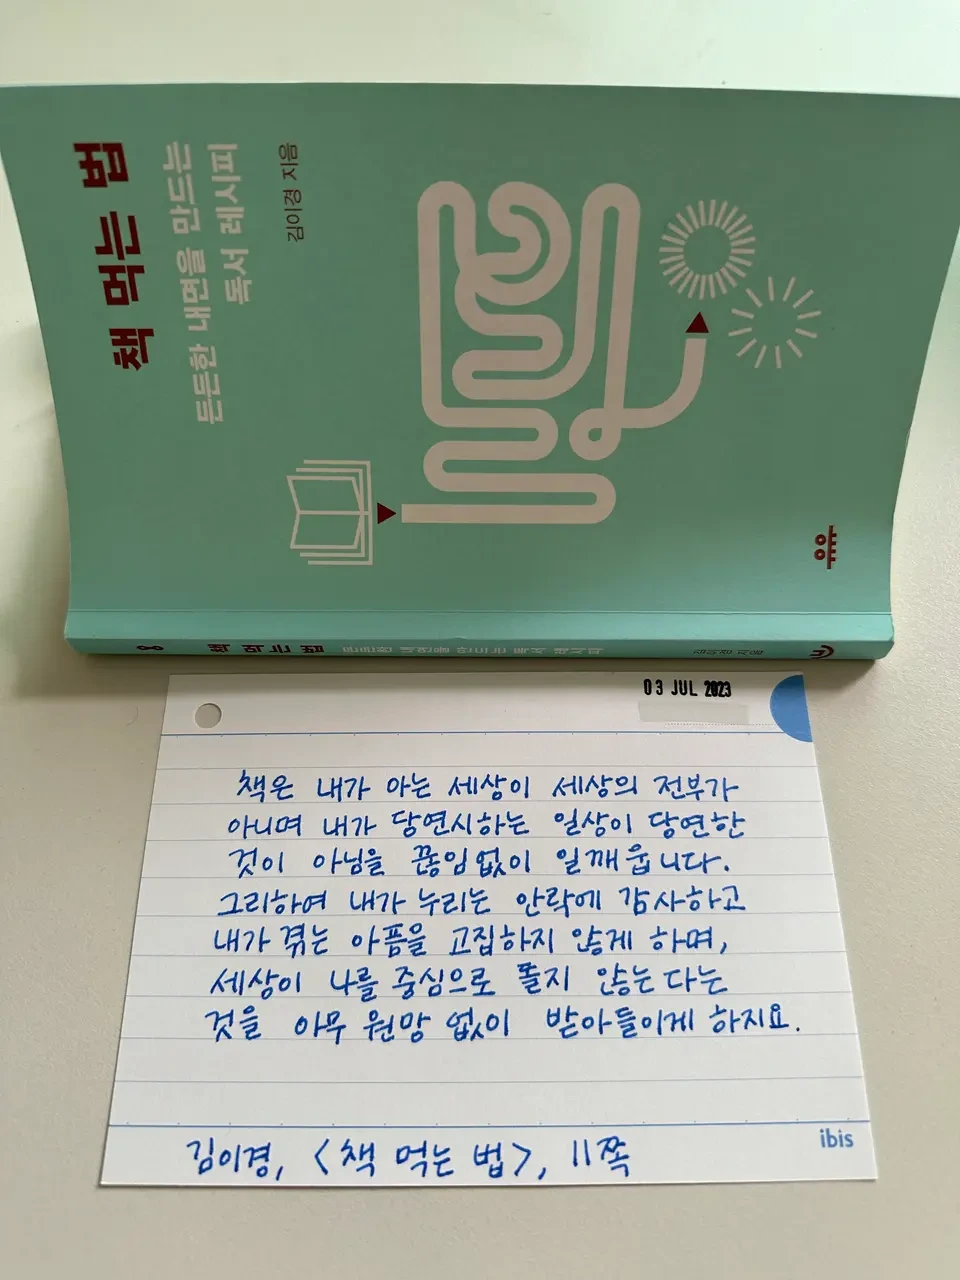 책 먹는 법
든든한 내면을 만드는
독서 레시피
김이경 지음
유유
책 먹는 법 든든한 내면을 만드는 독서 레시피 김이경 지음
03 JUL 2023
책은 내가 아는 세상이 세상의 전부가
아니며 내가 당연시하는 일상이 당연한
것이 아님을 끊임없이 일깨웁니다.
그리하여 내가 누리는 안락에 감사하고
내가 겪는 아픔을 고집하지 않게 하며,
세상이 나를 중심으로 돌지 않는다는
것을 아무 원망 없이 받아들이게 하지요.
김이경, <책 먹는 법>, 11쪽
ibis